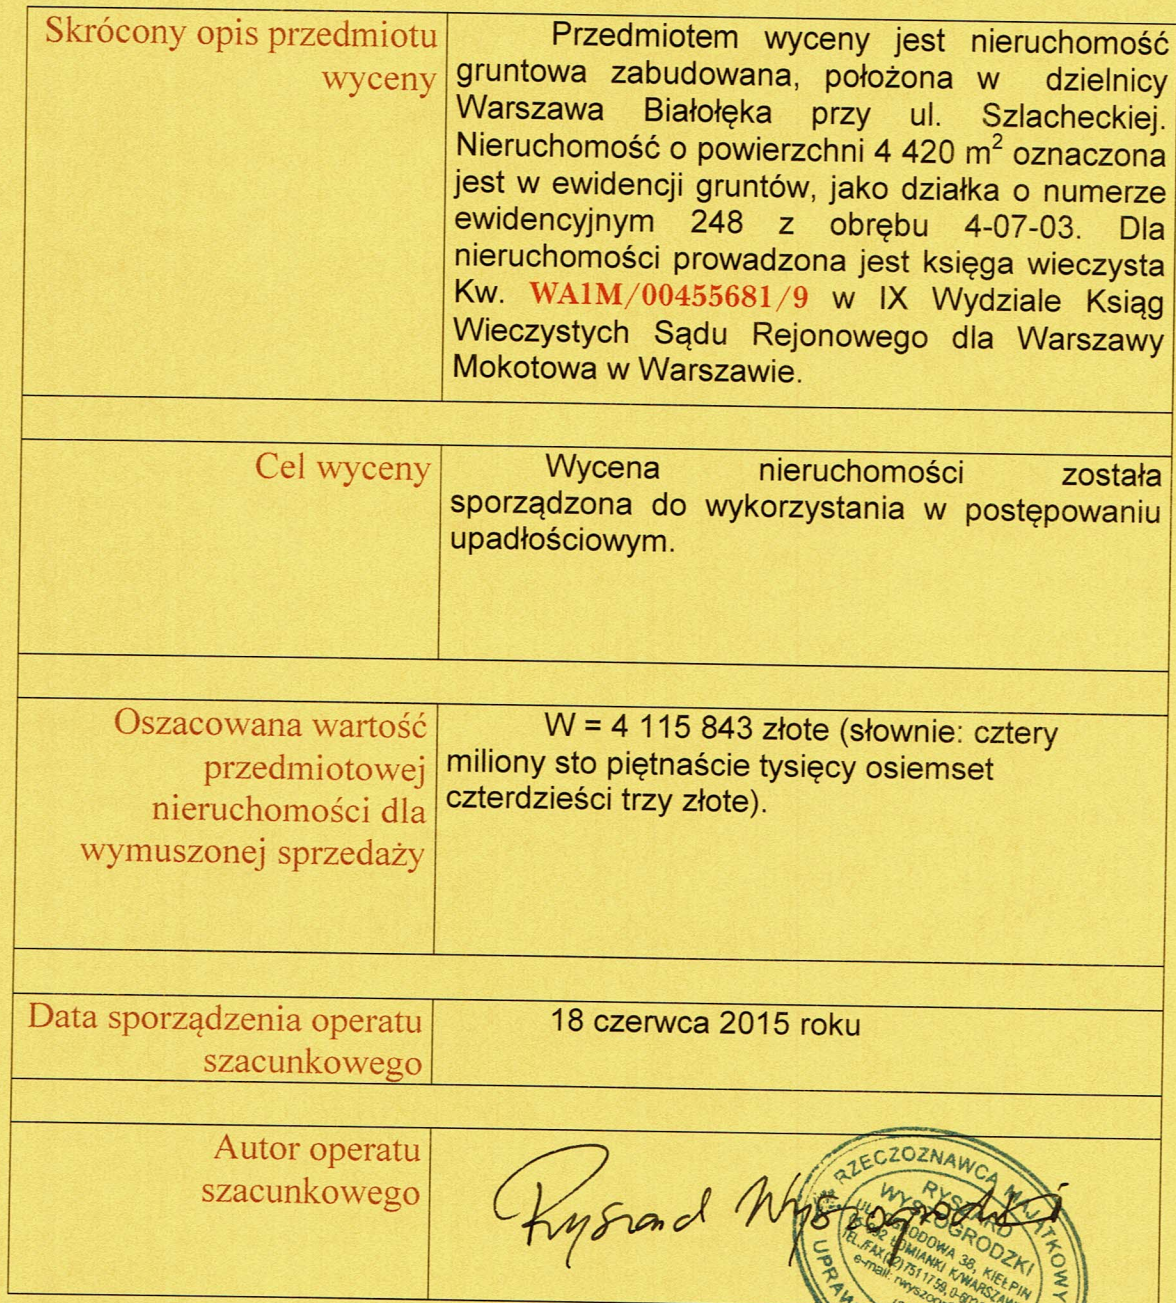 Skrócony opis przedmiotu
wyceny
Przedmiotem wyceny jest nieruchomość
gruntowa zabudowana, położona w dzielnicy
Warszawa Białołęka przy ul. Szlacheckiej.
Nieruchomość o powierzchni 4 420 m² oznaczona
jest w ewidencji gruntów, jako działka o numerze
ewidencyjnym 248 z obrębu 4-07-03. Dla
nieruchomości prowadzona jest księga wieczysta
Kw. WA1M/00455681/9 w IX Wydziale Ksiąg
Wieczystych Sądu Rejonowego dla Warszawy
Mokotowa w Warszawie.
Cel wyceny
Wycena nieruchomości została
sporządzona do wykorzystania w postępowaniu
upadłościowym.
Oszacowana wartość
przedmiotowej
nieruchomości dla
wymuszonej sprzedaży
W = 4 115 843 złote (słownie: cztery
miliony sto piętnaście tysięcy osiemset
czterdzieści trzy złote).
Data sporządzenia operatu
szacunkowego
18 czerwca 2015 roku
Autor operatu
szacunkowego
Ryszard Wyszogrodzki
RZECZOZNAWCA MAJĄTKOWY
RYSZARD
WYSZOGRODZKI
38, KIEŁPIN
ŁOMIANKI K/WARSZAWY
TEL./FAX (22) 751 17 59,
e-mail: